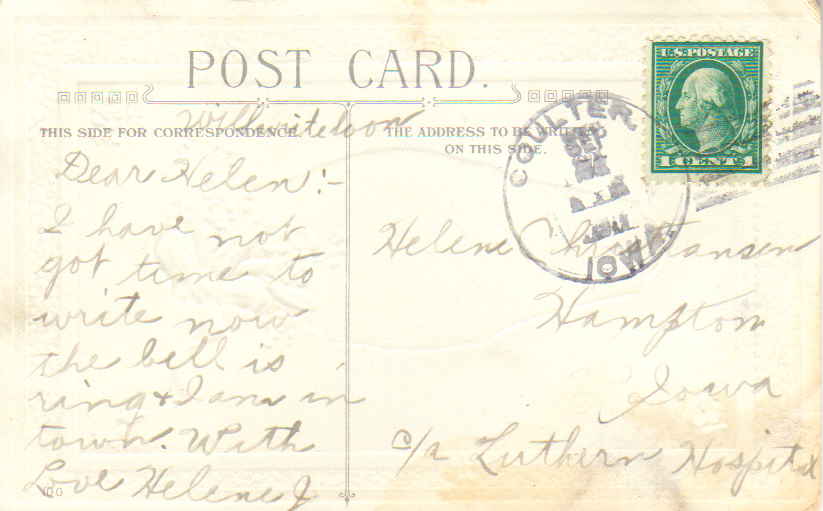 POST CARD.
Will write soon
THIS SIDE FOR CORRESPONDENCE
THE ADDRESS TO BE WRITTEN
ON THIS SIDE.
U.S. POSTAGE
1 CENT 1
COULTER,
IOWA
Dear Helen:-
I have not
got time to
write now
the bell is
ring & I am in
town. With
Love Helene J
100
Helene Christiansen
Hampton
Iowa
c/a Luthern Hospital